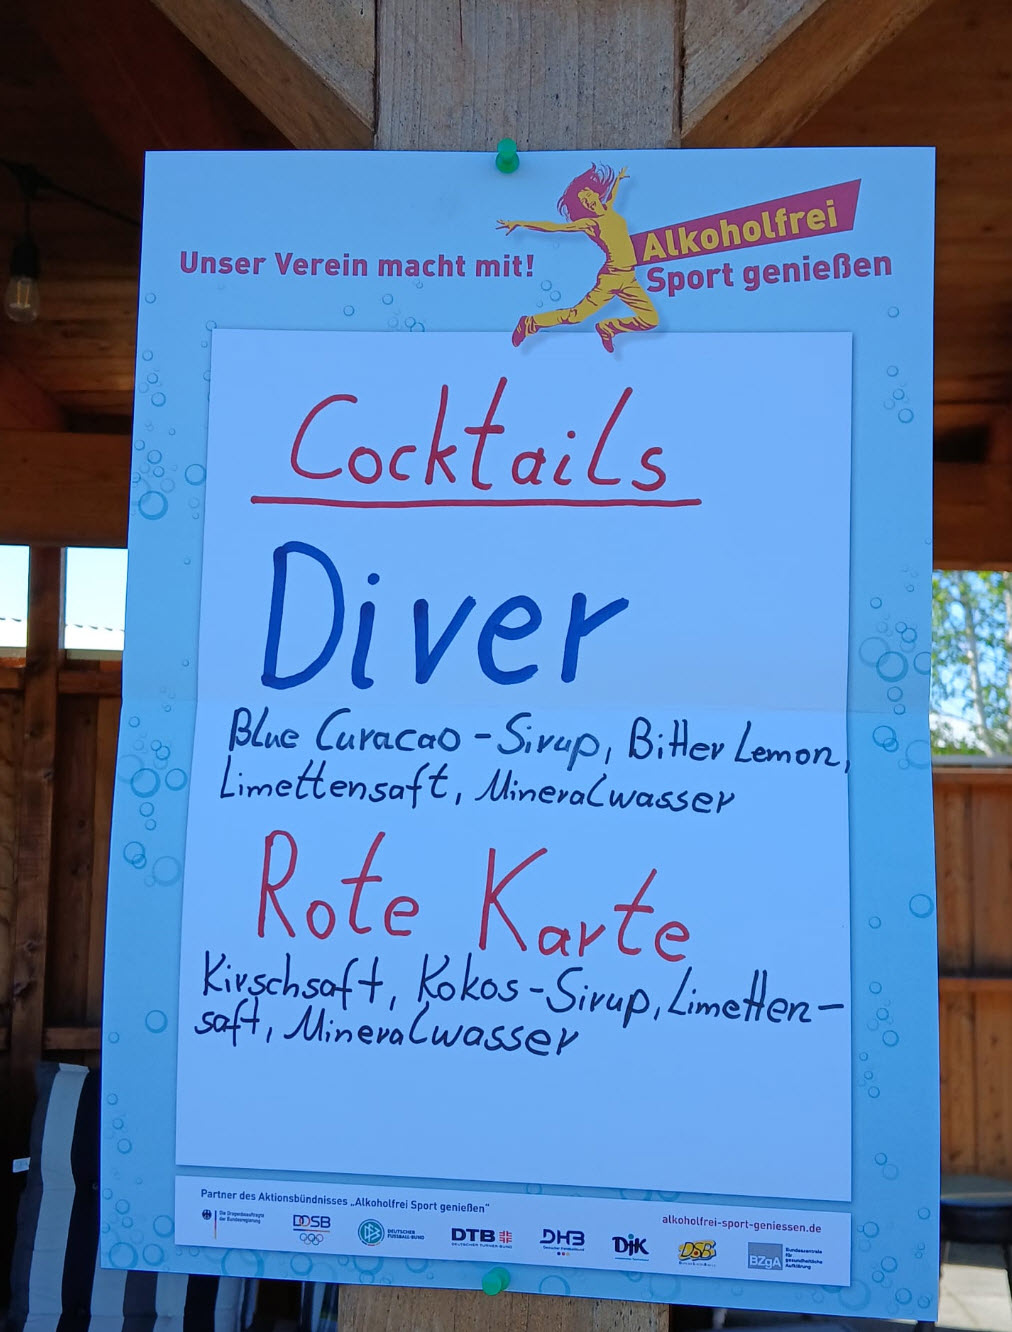 Unser Verein macht mit!
Alkoholfrei
Sport genießen
Cocktails
Diver
Blue Curacao-Sirup, Bitter Lemon,
Limettensaft, Mineralwasser
Rote Karte
Kirschsaft, Kokos-Sirup, Limetten-
saft, Mineralwasser
Partner des Aktionsbündnisses „Alkoholfrei Sport genießen“
alkoholfrei-sport-geniessen.de
Die Drogenbeauftragte
der Bundesregierung
DOSB
DEUTSCHER
FUSSBALL-BUND
DTB
DEUTSCHER TURNER-BUND
DHB
Deutscher Handballbund
DJK
BZgA
Bundeszentrale
für
gesundheitliche
Aufklärung